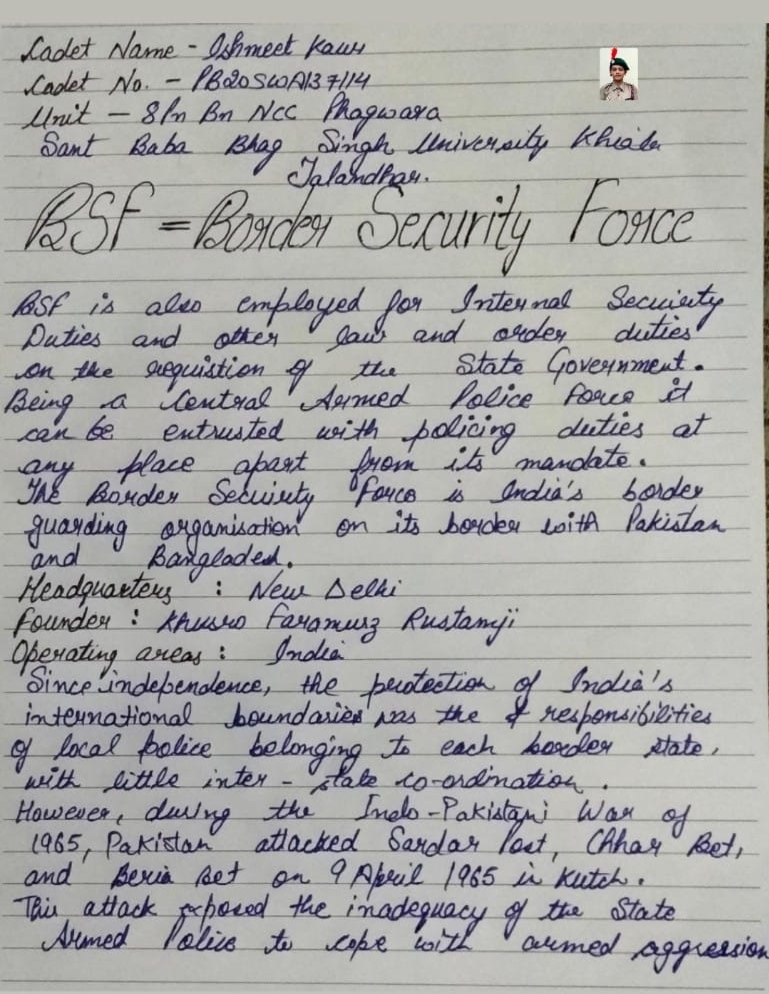 Cadet Name - Ishmeet Kaur
Cadet No. - PB20SWA137114
Unit - 8 Pn Bn NCC Phagwara
Sant Baba Bhag Singh University Khiala
Jalandhar.
BSF = Border Security Force
BSF is also employed for Internal Security
Duties and other law and order duties
on the requistion of the State Government.
Being a Central Armed Police Force it
can be entrusted with policing duties at
any place apart from its mandate.
The Border Security Force is India's border
guarding organisation on its border with Pakistan
and Bangladesh.
Headquarters : New Delhi
Founder : Khusro Faramurz Rustamji
Operating areas : India
Since independence, the protection of India's
international boundaries was the responsibilities
of local police belonging to each border state,
with little inter - state co-ordination.
However, during the Indo-Pakistani War of
1965, Pakistan attacked Sardar Post, Chhar Bet,
and Beria Bet on 9 April 1965 in Kutch.
This attack exposed the inadequacy of the State
Armed Police to cope with armed aggression